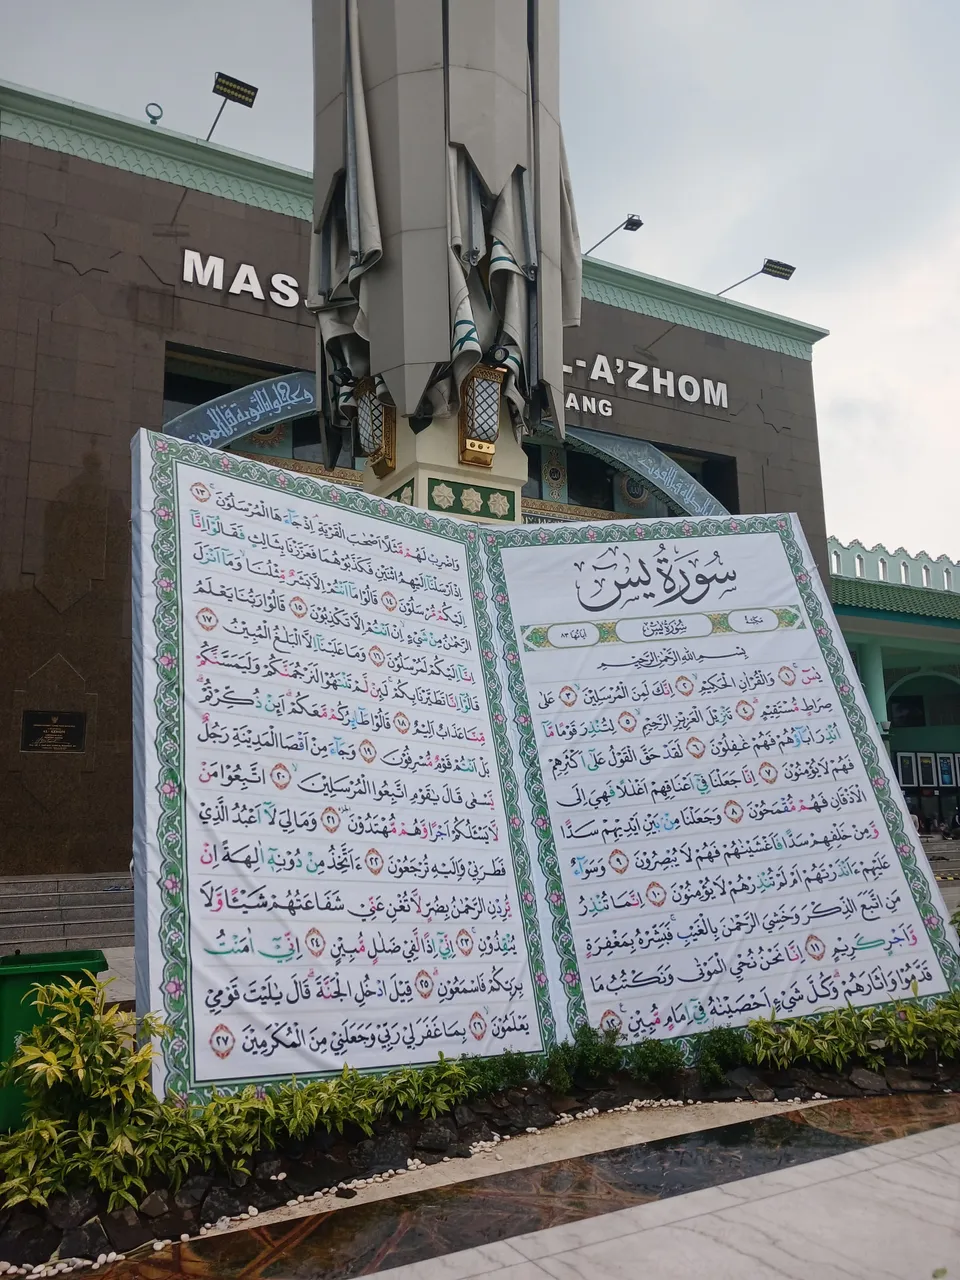 MAS
L-A'ZHOM
ANG
وعجلوا بالتوبة قبل الموت
سُوْرَةُ يٰسٓ
مَكِّيَّةٌ
سُوْرَةُ يٰسٓ
اٰيَاتُهَا ٨٣
بِسْمِ اللّٰهِ الرَّحْمٰنِ الرَّحِيْمِ
يٰسۤ ۚ ١ وَالْقُرْاٰنِ الْحَكِيْمِۙ ٢ اِنَّكَ لَمِنَ الْمُرْسَلِيْنَۙ ٣ عَلٰى
صِرَاطٍ مُّسْتَقِيْمٍۗ ٤ تَنْزِيْلَ الْعَزِيْزِ الرَّحِيْمِۙ ٥ لِتُنْذِرَ قَوْمًا مَّآ
اُنْذِرَ اٰبَاۤؤُهُمْ فَهُمْ غٰفِلُوْنَ ٦ لَقَدْ حَقَّ الْقَوْلُ عَلٰٓى اَكْثَرِهِمْ
فَهُمْ لَا يُؤْمِنُوْنَ ٧ اِنَّا جَعَلْنَا فِيْٓ اَعْنَاقِهِمْ اَغْلٰلًا فَهِيَ اِلَى
الْاَذْقَانِ فَهُمْ مُّقْمَحُوْنَ ٨ وَجَعَلْنَا مِنْۢ بَيْنِ اَيْدِيْهِمْ سَدًّا
وَّمِنْ خَلْفِهِمْ سَدًّا فَاَغْشَيْنٰهُمْ فَهُمْ لَا يُبْصِرُوْنَ ٩ وَسَوَاۤءٌ
عَلَيْهِمْ ءَاَنْذَرْتَهُمْ اَمْ لَمْ تُنْذِرْهُمْ لَا يُؤْمِنُوْنَ ١٠ اِنَّمَا تُنْذِرُ
مَنِ اتَّبَعَ الذِّكْرَ وَخَشِيَ الرَّحْمٰنَ بِالْغَيْبِۚ فَبَشِّرْهُ بِمَغْفِرَةٍ
وَّاَجْرٍ كَرِيْمٍ ١١ اِنَّا نَحْنُ نُحْيِ الْمَوْتٰى وَنَكْتُبُ مَا
قَدَّمُوْا وَاٰثَارَهُمْۗ وَكُلَّ شَيْءٍ اَحْصَيْنٰهُ فِيْٓ اِمَامٍ مُّبِيْنٍ ١٢
وَاضْرِبْ لَهُمْ مَّثَلًا اَصْحٰبَ الْقَرْيَةِۘ اِذْ جَاۤءَهَا الْمُرْسَلُوْنَۚ ١٣
اِذْ اَرْسَلْنَآ اِلَيْهِمُ اثْنَيْنِ فَكَذَّبُوْهُمَا فَعَزَّزْنَا بِثَالِثٍ فَقَالُوْٓا اِنَّآ
اِلَيْكُمْ مُّرْسَلُوْنَ ١٤ قَالُوْا مَآ اَنْتُمْ اِلَّا بَشَرٌ مِّثْلُنَاۙ وَمَآ اَنْزَلَ
الرَّحْمٰنُ مِنْ شَيْءٍۙ اِنْ اَنْتُمْ اِلَّا تَكْذِبُوْنَ ١٥ قَالُوْا رَبُّنَا يَعْلَمُ
اِنَّآ اِلَيْكُمْ لَمُرْسَلُوْنَ ١٦ وَمَا عَلَيْنَآ اِلَّا الْبَلٰغُ الْمُبِيْنُ ١٧
قَالُوْٓا اِنَّا تَطَيَّرْنَا بِكُمْۚ لَىِٕنْ لَّمْ تَنْتَهُوْا لَنَرْجُمَنَّكُمْ وَلَيَمَسَّنَّكُمْ
مِّنَّا عَذَابٌ اَلِيْمٌ ١٨ قَالُوْا طَاۤىِٕرُكُمْ مَّعَكُمْۗ اَىِٕنْ ذُكِّرْتُمْۗ
بَلْ اَنْتُمْ قَوْمٌ مُّسْرِفُوْنَ ١٩ وَجَاۤءَ مِنْ اَقْصَا الْمَدِيْنَةِ رَجُلٌ
يَّسْعٰى قَالَ يٰقَوْمِ اتَّبِعُوا الْمُرْسَلِيْنَۙ ٢٠ اتَّبِعُوْا مَنْ
لَّا يَسْـَٔلُكُمْ اَجْرًا وَّهُمْ مُّهْتَدُوْنَ ٢١ وَمَا لِيَ لَآ اَعْبُدُ الَّذِيْ
فَطَرَنِيْ وَاِلَيْهِ تُرْجَعُوْنَ ٢٢ ءَاَتَّخِذُ مِنْ دُوْنِهٖٓ اٰلِهَةً اِنْ
يُّرِدْنِ الرَّحْمٰنُ بِضُرٍّ لَّا تُغْنِ عَنِّيْ شَفَاعَتُهُمْ شَيْـًٔا وَّلَا
يُنْقِذُوْنِۚ ٢٣ اِنِّيْٓ اِذًا لَّفِيْ ضَلٰلٍ مُّبِيْنٍ ٢٤ اِنِّيْٓ اٰمَنْتُ
بِرَبِّكُمْ فَاسْمَعُوْنِۗ ٢٥ قِيْلَ ادْخُلِ الْجَنَّةَۗ قَالَ يٰلَيْتَ قَوْمِيْ
يَعْلَمُوْنَۙ ٢٦ بِمَا غَفَرَ لِيْ رَبِّيْ وَجَعَلَنِيْ مِنَ الْمُكْرَمِيْنَ ٢٧